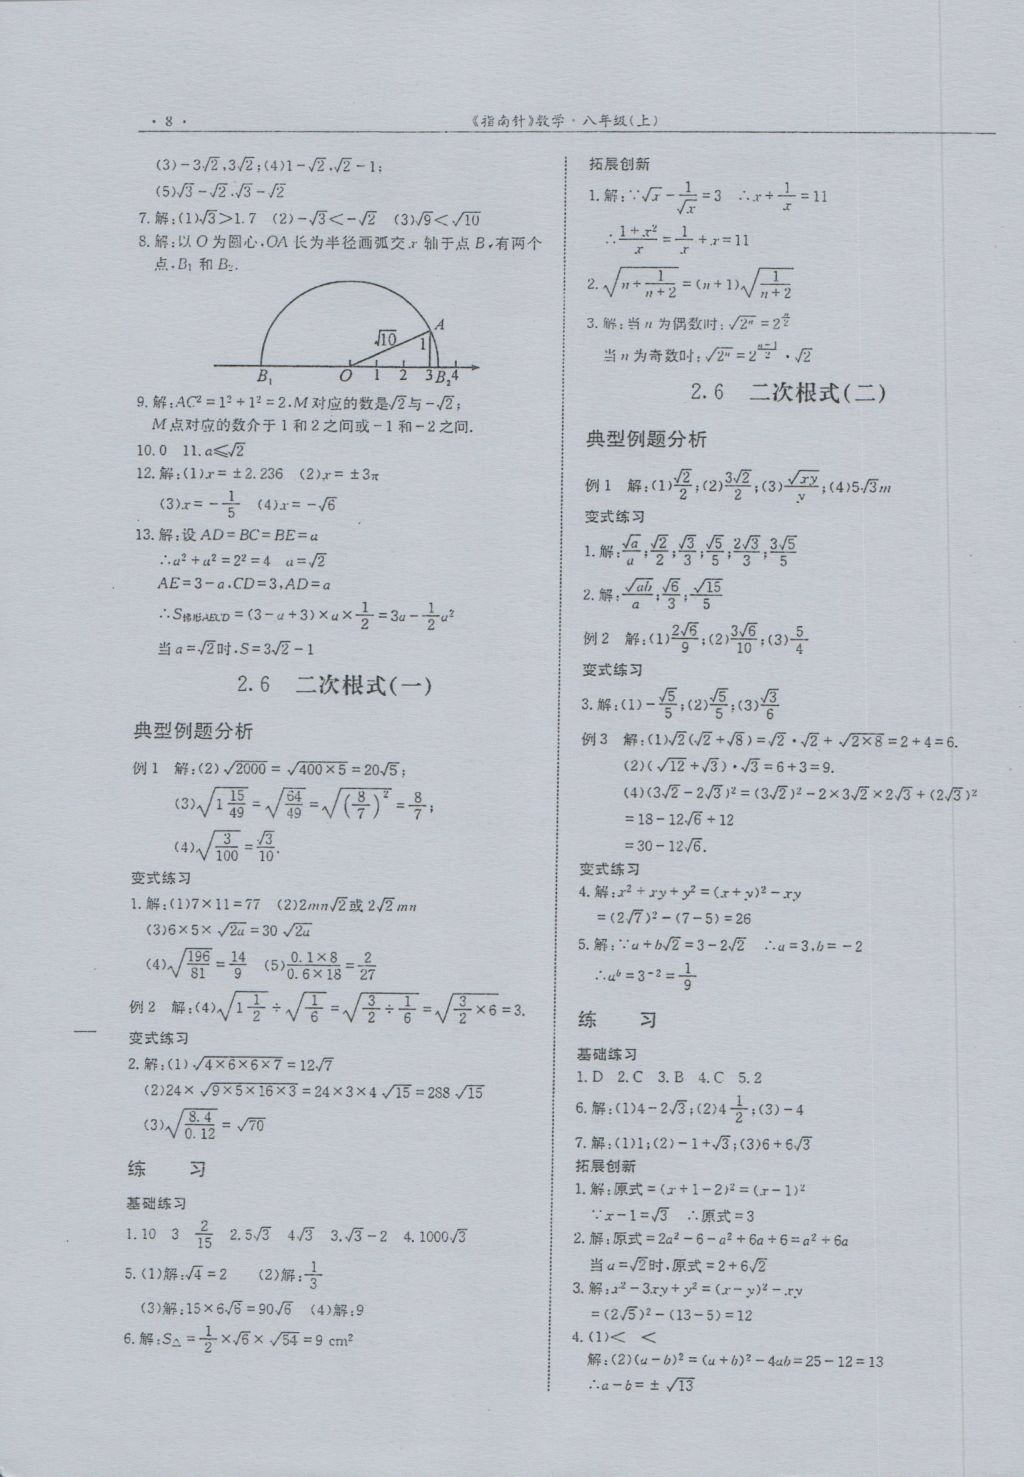 · 8 ·
《指南针》数学·八年级(上)
(3)-3√2,3√2;(4)1-√2,√2-1;
(5)√3-√2,√3-√2
7.解:(1)√3>1.7 (2)-√3<-√2 (3)√9<√10
8.解:以O为圆心,OA长为半径画弧交x轴于点B,有两个
点,B₁和B₂.
A
√10
1
B₁ O 1 2 3 B₂ 4
9.解:AC²=1²+1²=2,M对应的数是√2与-√2;
M点对应的数介于1和2之间或-1和-2之间.
10.0 11.a≤√2
12.解:(1)x=±2.236 (2)x=±3π
(3)x=-1/5 (4)x=-√6
13.解:设AD=BC=BE=a
∴a²+a²=2²=4 a=√2
AE=3-a,CD=3,AD=a
∴S梯形AECD=(3-a+3)×a×1/2=3a-1/2a²
当a=√2时,S=3√2-1
2.6 二次根式(一)
典型例题分析
例1 解:(2)√2000=√400×5=20√5;
(3)√(1 15/49)=√(64/49)=√((8/7)²)=8/7;
(4)√(3/100)=√3/10.
变式练习
1.解:(1)7×11=77 (2)2mn√2或2√2mn
(3)6×5×√2a=30√2a
(4)√(196/81)=14/9 (5)(0.1×8)/(0.6×18)=2/27
例2 解:(4)√(1 1/2)÷√(1/6)=√(3/2÷1/6)=√(3/2×6)=3.
变式练习
2.解:(1)√(4×6×6×7)=12√7
(2)24×√(9×5×16×3)=24×3×4√15=288√15
(3)√(8.4/0.12)=√70
练 习
基础练习
1.10 3 2/15 2.5√3 4√3 3.√3-2 4.1000√3
5.(1)解:√4=2 (2)解:1/3
(3)解:15×6√6=90√6 (4)解:9
6.解:S△=1/2×√6×√54=9 cm²
拓展创新
1.解:∵√x-1/√x=3 ∴x+1/x=11
∴(1+x²)/x=1/x+x=11
2.√(n+1/(n+2))=(n+1)√(1/(n+2))
3.解:当n为偶数时:√(2ⁿ)=2^(n/2)
当n为奇数时:√(2ⁿ)=2^((n-1)/2)·√2
2.6 二次根式(二)
典型例题分析
例1 解:(1)√2/2;(2)3√2/2;(3)√(xy)/y;(4)5√3m
变式练习
1.解:√a/a;√2/2;√3/3;√5/5;2√3/3;3√5/5
2.解:√(ab)/a;√6/3;√15/5
例2 解:(1)2√6/9;(2)3√6/10;(3)5/4
变式练习
3.解:(1)-√5/5;(2)√5/5;(3)√3/6
例3 解:(1)√2(√2+√8)=√2·√2+√(2×8)=2+4=6.
(2)(√12+√3)·√3=6+3=9.
(4)(3√2-2√3)²=(3√2)²-2×3√2×2√3+(2√3)²
=18-12√6+12
=30-12√6.
变式练习
4.解:x²+xy+y²=(x+y)²-xy
=(2√7)²-(7-5)=26
5.解:∵a+b√2=3-2√2 ∴a=3,b=-2
∴aᵇ=3⁻²=1/9
练 习
基础练习
1.D 2.C 3.B 4.C 5.2
6.解:(1)4-2√3;(2)4 1/2;(3)-4
7.解:(1)1;(2)-1+√3;(3)6+6√3
拓展创新
1.解:原式=(x+1-2)²=(x-1)²
∵x-1=√3 ∴原式=3
2.解:原式=2a²-6-a²+6a+6=a²+6a
当a=√2时,原式=2+6√2
3.解:x²-3xy+y²=(x-y)²-xy
=(2√5)²-(13-5)=12
4.(1)< <
解:(2)(a-b)²=(a+b)²-4ab=25-12=13
∴a-b=±√13